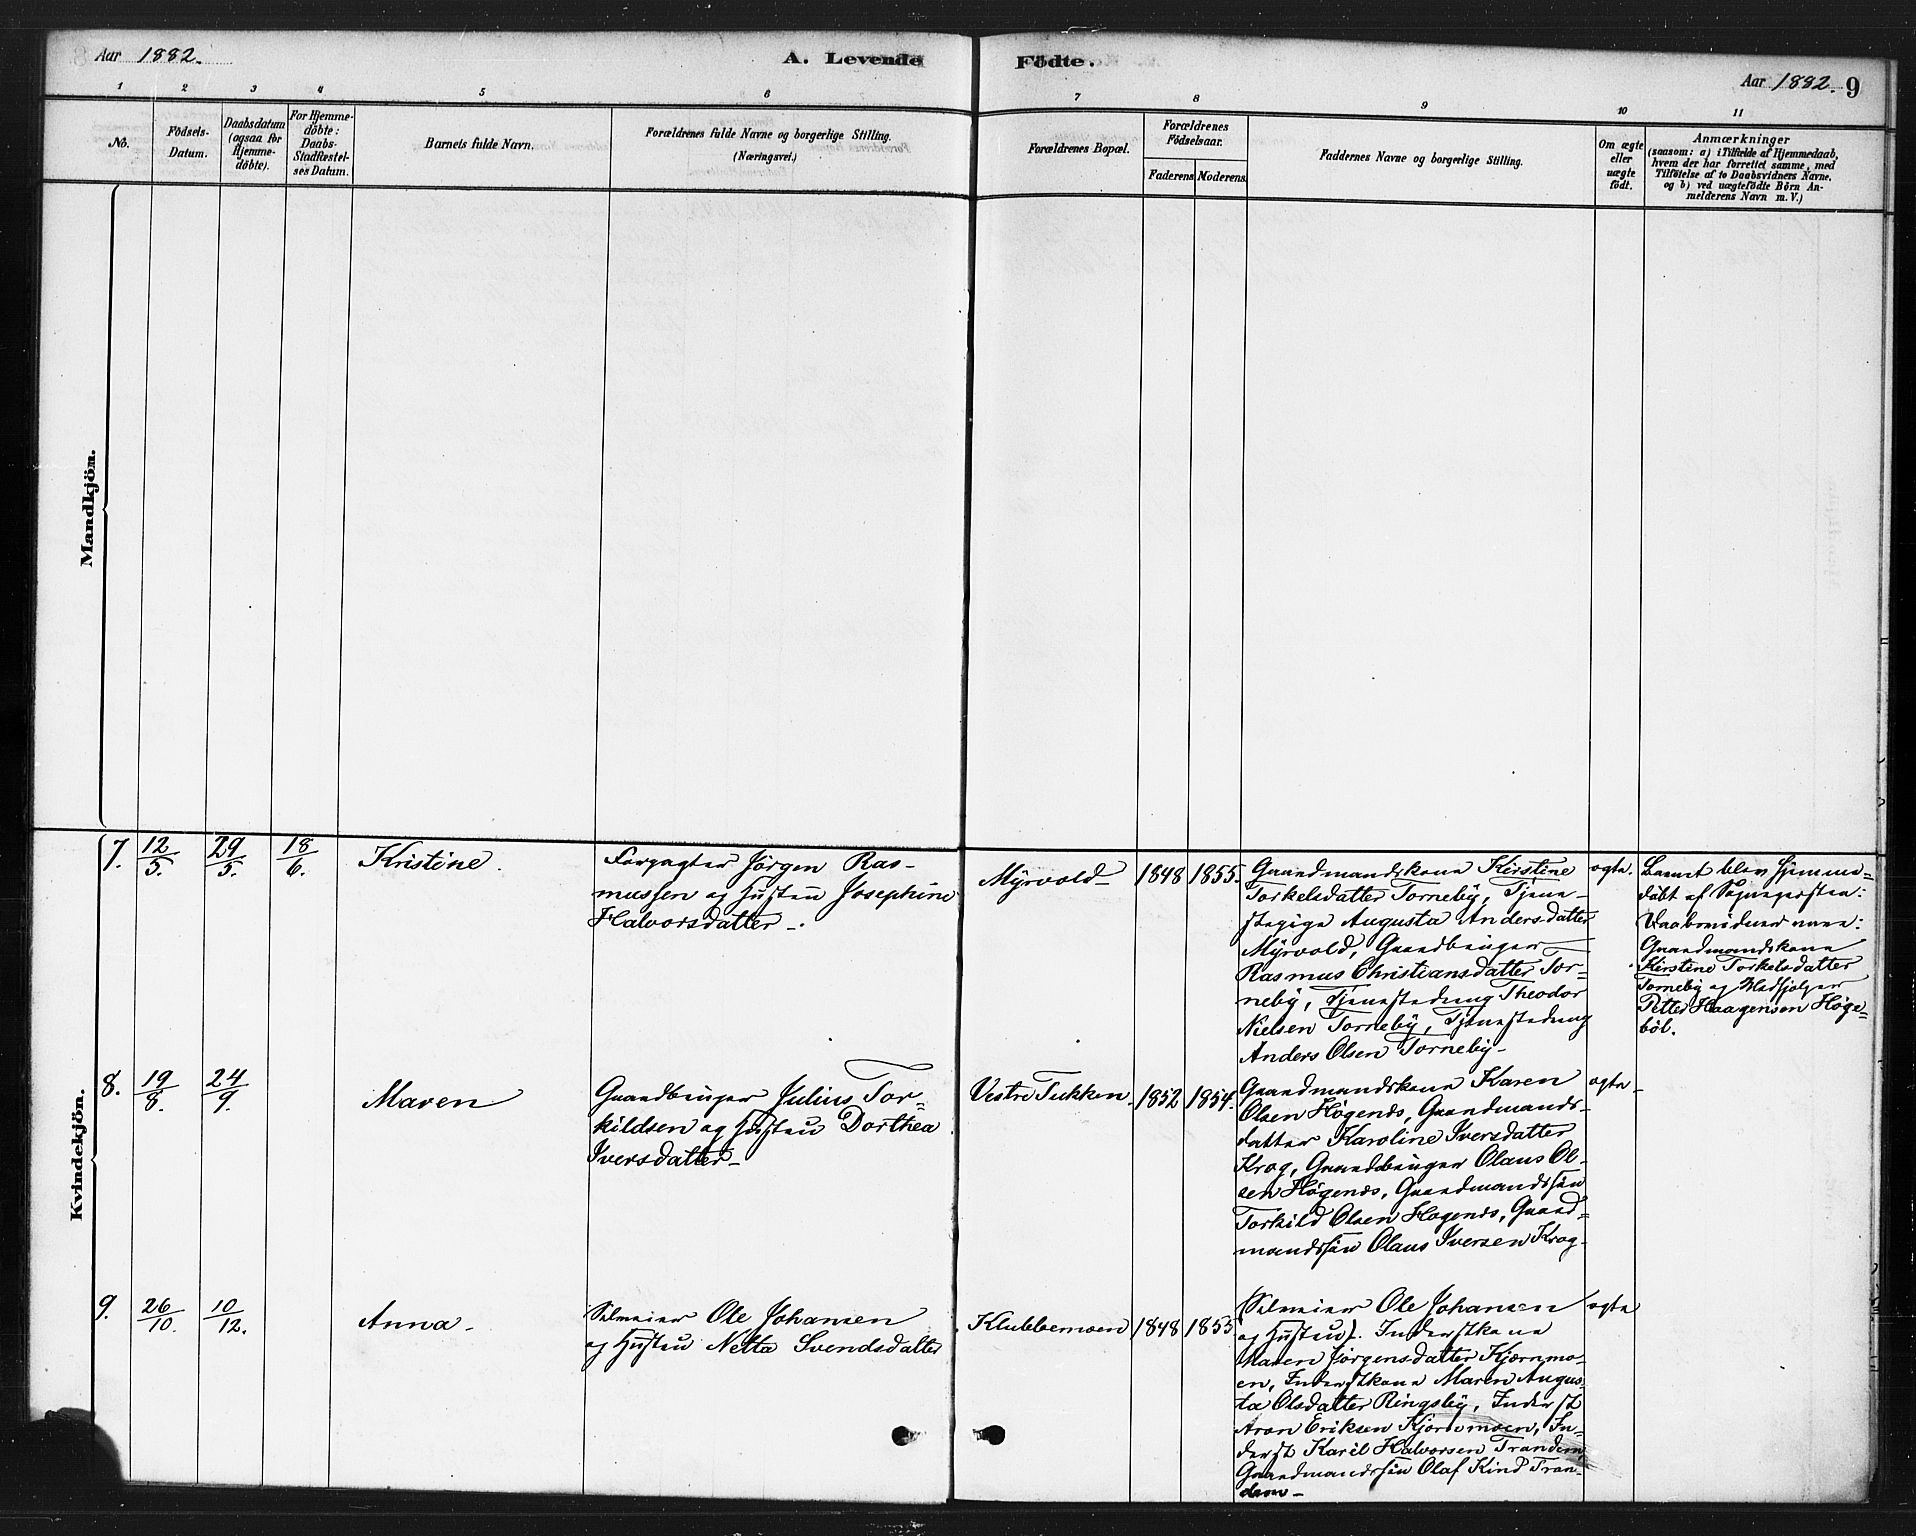 Aar 1882.
A. Levende Födte.
Aar 1882. 9
1 2 3 4 5 6 7 8 9 10 11
No.
Födsels-
Datum.
Daabsdatum
(ogsaa for
Hjemme-
döbte).
For Hjemme-
döbte:
Daabs-
Stadfestel-
ses Datum.
Barnets fulde Navn.
Forældrenes fulde Navne og borgerlige Stilling.
(Næringsvei.)
Forældrenes Bopæl.
Forældrenes
Födselsaar.
Faderens Moderens.
Faddernes Navne og borgerlige Stilling.
Om ægte
eller
uægte
födt.
Anmærkninger
(saasom: a) i Tilfælde af Hjemmedaab,
hvem der har forrettet samme, med
Tilföielse af to Daabsvidners Navne,
og b) ved uægtefödte Börn An-
melderens Navn m. V.)
Mandkjön.
Kvindekjön.
7. 12/5. 29/5. 18/6. Kristine.
Forpagter Jörgen Ras-
mussen og Hustru Josephine
Halvorsdatter -.
Myrvold - 1848 1855.
Gaardmandskone Kirstine
Torkelsdatter Torneby, Tjene-
stepige Augusta Andersdatter
Myrvold, Gaardbruger
Rasmus Christiansdatter Tor=
neby, Tjenestedreng Theodor
Nielsen Torneby, Tjenestedreng
Anders Olsen Torneby -
ægte.
Barnet blev hjemme=
döbt af Sognepresten:
Daabsvidner vare:
Gaardmandskone
Kirstine Torkelsdatter
Torneby og Medhjelper
Petter Haagensen Höge=
böl.
8. 19/8. 24/9. Maren
Gaardbruger Julius Tor=
kildsen og Hustru Dorthea
Iversdatter -
Vestre Tukken. 1852 1854.
Gaardmandskone Karen
Olsen Högenæs, Gaardmands-
datter Karoline Iversdatter
Krog, Gaardbruger Olaus Ol-
sen Högenæs, Gaardmandssön
Torkild Olsen Hogenæs, Gaard=
mandssön Olaus Iversen Krog -
ægte -
9. 26/10. 10/12. Anna -
Selveier Ole Johansen
og Hustru Netta Svendsdatter
Klubbemoen 1848 1855
(Selveier Ole Johansen
og Hustru). Inderstkone
Maren Jörgensdatter Kjærnmo-
en, Inderstkone Maren Augus-
ta Olsdatter Ringsby, Inderst
Aron Eriksen Kjernmoen, In-
derst Karel Halvorsen Trandem,
Gaardmandssön Olaf Kind Tran-
dem -
ægte